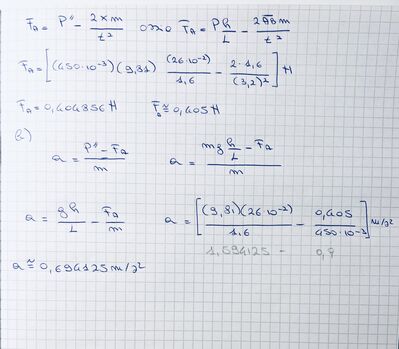 F_A = P" - 2xm/t² ossia F_A = Ph/L - 2ABm/t²
F_A = [(450·10⁻³)(9,81) (26·10⁻²)/1,6 - 2·1,6/(3,2)²] N
F_A = 0,404856 N F_A ≅ 0,405 N
a = P"-F_A/m a = mg h/L - F_A/m
a = gh/L - F_A/m a = [(9,81)(26·10⁻²)/1,6 - 0,405/450·10⁻³] m/s²
1,594125 - 0,9
a ≅ 0,694125 m/s²